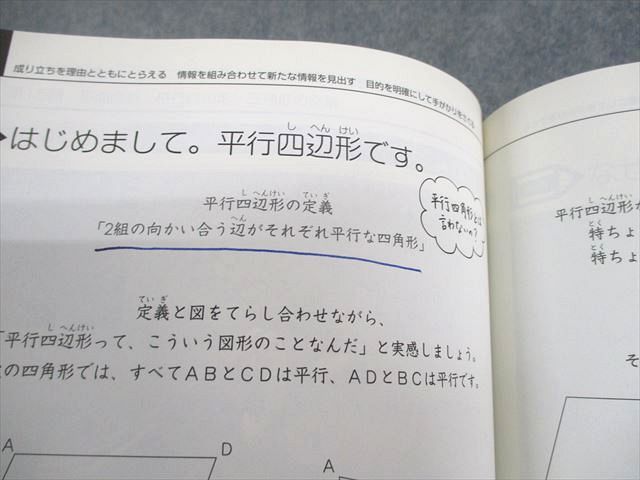 成り立ちを理由とともにとらえる　情報を組み合わせて新たな情報を見出す　目的を明確にして手がかりを
はじめまして。平行四辺形です。
し へん けい
平行四辺形の定義
し へんけい
てい ぎ
「2組の向かい合う辺がそれぞれ平行な四角形」
へん
平行四角形とは
言わないの？
定義と図をてらし合わせながら、
てい ぎ
「平行四辺形って、こういう図形のことなんだ」と実感しましょう。
し へんけい
の四角形では、すべてＡＢとＣＤは平行、ＡＤとＢＣは平行です。
A
D
A
平行四辺形
し へんけい
特ちょ
とく
特ちょ
とく
そ